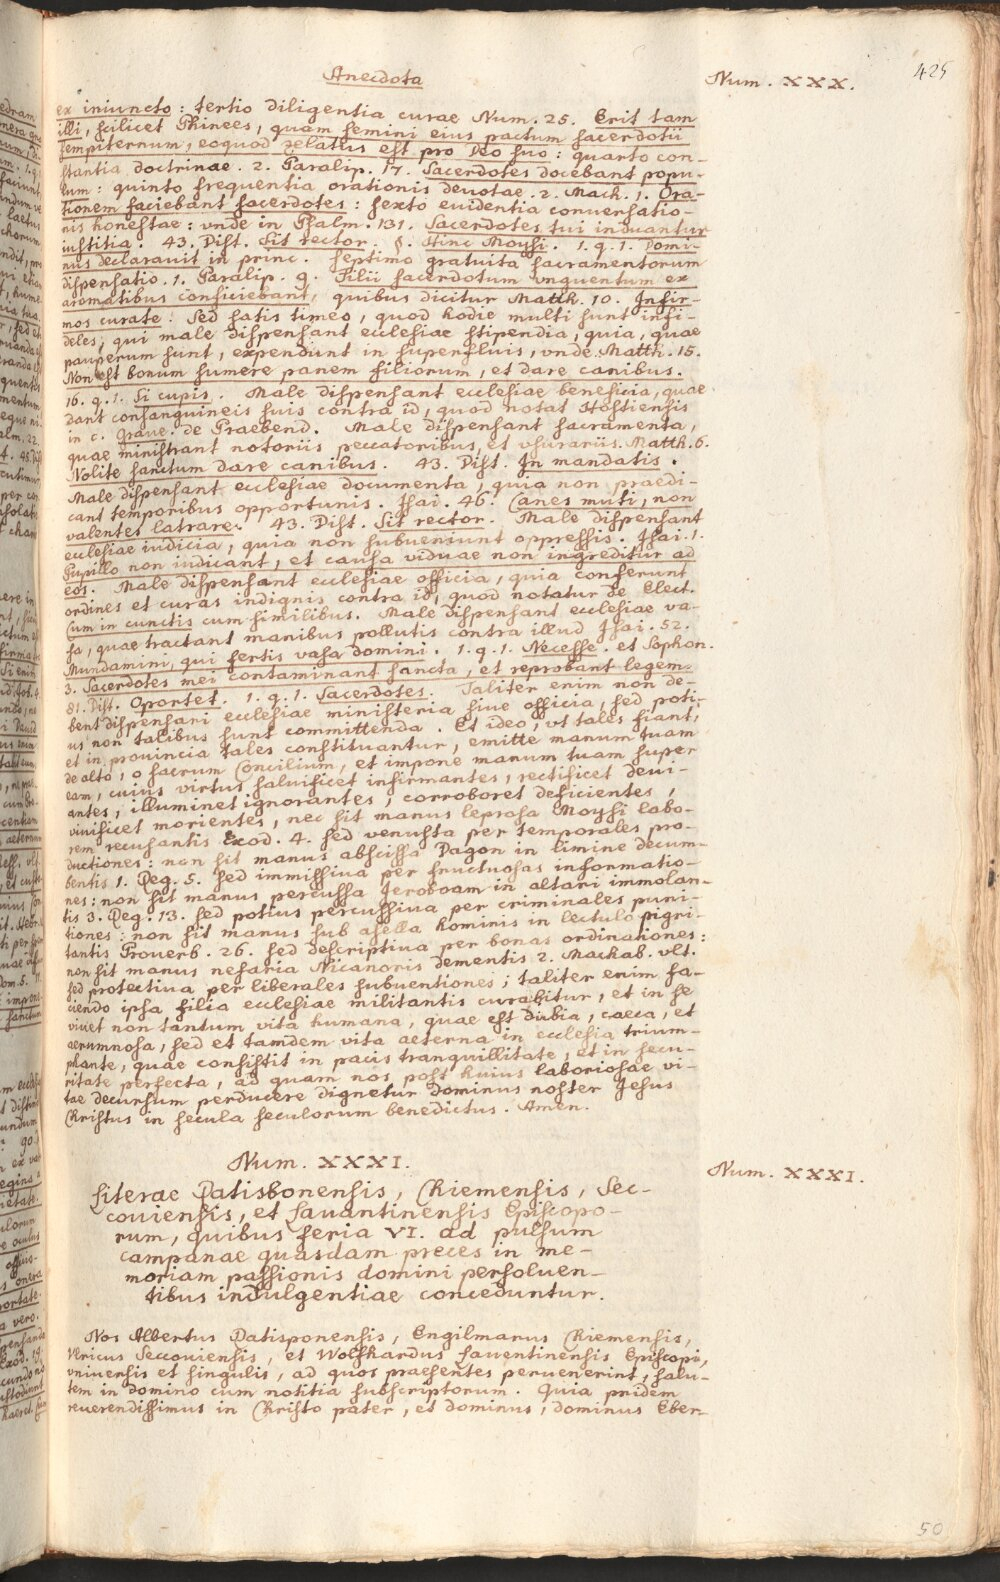 Anecdota
Num. XXX.
425
ex iniuncto: tertio diligentia curae Num. 25. Erit tam
illi, scilicet Phinees, quam semini eius pactum sacerdotii
sempiternum, eoquod zelatus est pro Deo suo: quarto con-
stantia doctrinae. 2. Paralip. 17. Sacerdotes docebant popu-
lum: quinto frequentia orationis deuotae. 2. Mach. 1. Ora-
tionem faciebant sacerdotes: sexto euidentia conuersatio-
nis honestae: vnde in Psalm. 131. Sacerdotes tui induantur
iustitia. 43. Dist. Sit rector. §. Hinc Moysi. 1. q. 1. Domi-
nus declarauit in princ. septimo gratuita sacramentorum
dispensatio. 1. Paralip. 9. Filii sacerdotum vnguentum ex
aromatibus conficiebant, quibus dicitur Matth. 10. Infir-
mos curate: Sed satis timeo, quod hodie multi sunt infi-
deles, qui male dispensant ecclesiae stipendia, quia, quae
pauperum sunt, expendunt in superfluis, vnde Matth. 15.
Non est bonum sumere panem filiorum, et dare canibus.
16. q. 1. Si cupis. Male dispensant ecclesiae beneficia, quae
dant consanguineis suis contra id, quod notat Hostiensis
in c. Graue. de Praebend. Male dispensant sacramenta,
quae ministrant notoriis peccatoribus, et vsurariis. Matth. 6.
Nolite sanctum dare canibus. 43. Dist. In mandatis.
Male dispensant ecclesiae documenta, quia non praedi-
cant temporibus opportunis. Isai. 46. Canes muti, non
valentes latrare. 43. Dist. Sit rector. Male dispensant
ecclesiae iudicia, quia non subueniunt oppressis. Isai. 1.
Pupillo non iudicant, et causa viduae non ingreditur ad
eos. Male dispensant ecclesiae officia, quia conferunt
ordines et curas indignis contra id, quod notatur de Elect.
Cum in cunctis cum similibus. Male dispensant ecclesiae va-
sa, quae tractant manibus pollutis contra illud Isai. 52.
Mundamini, qui fertis vasa domini. 1. q. 1. Necesse. et Sophon.
3. Sacerdotes mei contaminant sancta, et reprobant legem.
81. Dist. Oportet. 1. q. 1. Sacerdotes. Taliter enim non de-
bent dispensari ecclesiae ministeria siue officia, sed poti-
us non talibus sunt committenda. Et ideo, vt tales fiant,
et in prouincia tales constituantur, emitte manum tuam
de alto, o sacrum Concilium, et impone manum tuam super
eam, cuius virtus saluificet infirmantes, rectificet deui-
antes, illuminet ignorantes, corroboret deficientes,
viuificet morientes, nec sit manus leprosa Moysi labo-
rem recusantis Exod. 4. sed venusta per temporales pro-
ductiones: non sit manus abscissa Dagon in limine decum-
bentis 1. Reg. 5. sed immissiua per fructuosas informatio-
nes: non sit manus percussa Jeroboam in altari immolan-
tis 3. Reg. 13. sed potius percussiua per criminales puni-
tiones: non sit manus sub asella hominis in lectulo pigri-
tantis Prouerb. 26. sed descriptiua per bonas ordinationes:
non sit manus nefaria Nicanoris dementis 2. Machab. vlt.
sed protectiua per liberales subuentiones; taliter enim fa-
ciendo ipsa filia ecclesiae militantis curabitur, et in se
viuet non tantum vita humana, quae est dubia, caeca, et
aerumnosa, sed et tamdem vita aeterna in ecclesia trium-
phante, quae consistit in pacis tranquillitate, et in secu-
ritate perfecta, ad quam nos post huius laboriosae vi-
tae decursum perducere dignetur dominus noster Jesus
Christus in secula seculorum benedictus. Amen.
Num. XXXI.
Num. XXXI.
Literae Ratisbonensis, Chiemensis, Sec-
couiensis, et Lauantinensis Episcopo-
rum, quibus feria VI. ad pulsum
campanae quasdam preces in me-
moriam passionis domini persoluen-
tibus indulgentiae conceduntur.
Nos Albertus Ratisponensis, Engilmarus Chiemensis,
Vlricus Seccouiensis, et Wolfhardus Lauentinensis Episcopi,
vniuersis et singulis, ad quos praesentes peruenerint, salu-
tem in domino cum notitia subscriptorum. Quia pridem
reuerendissimus in Christo pater, et dominus, dominus Eber-
50